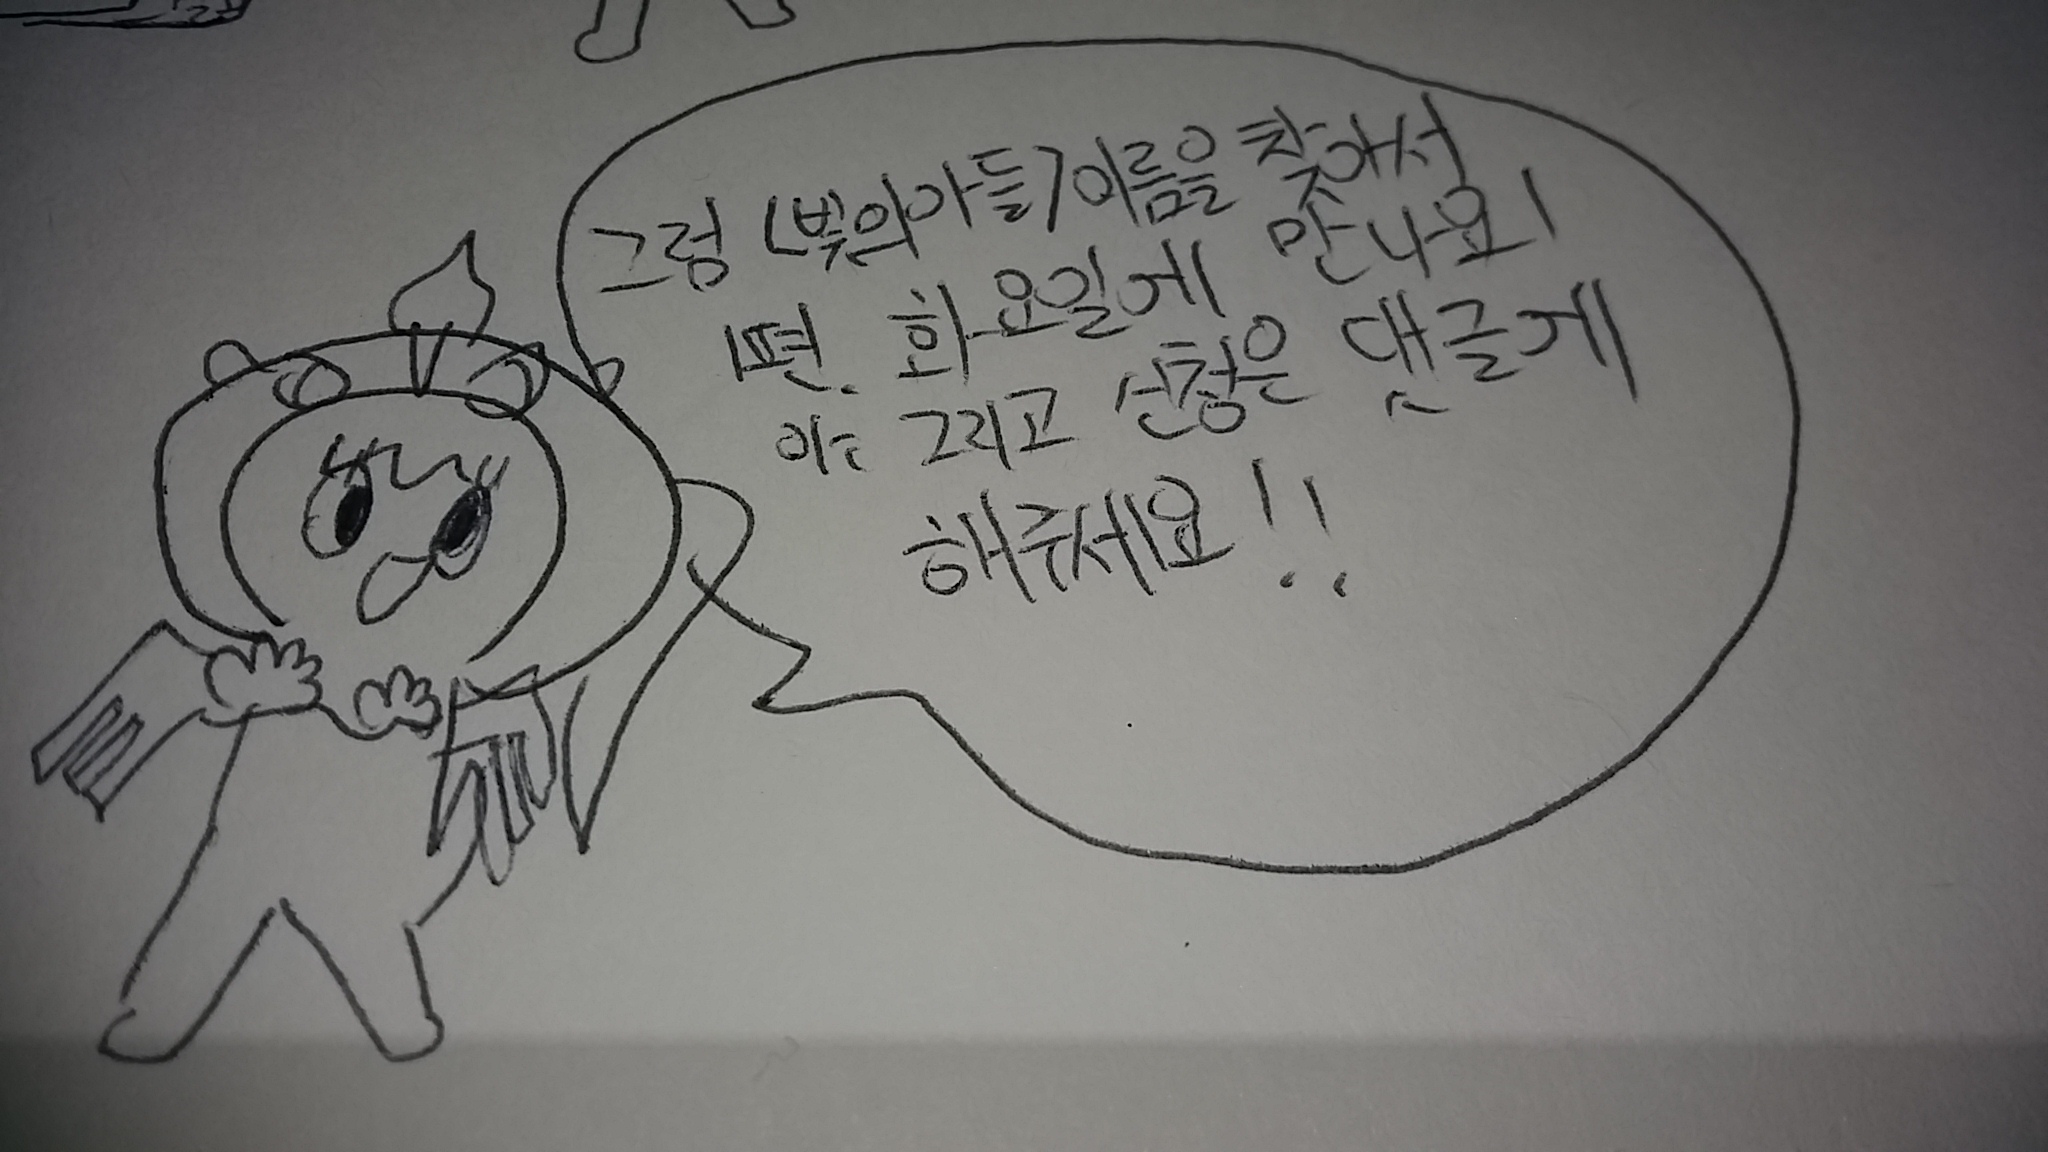 그럼 <빛의아들> 이름을 찾아서
1편. 화요일에 만나요!
아: 그리고 신청은 댓글게
해주세요!!